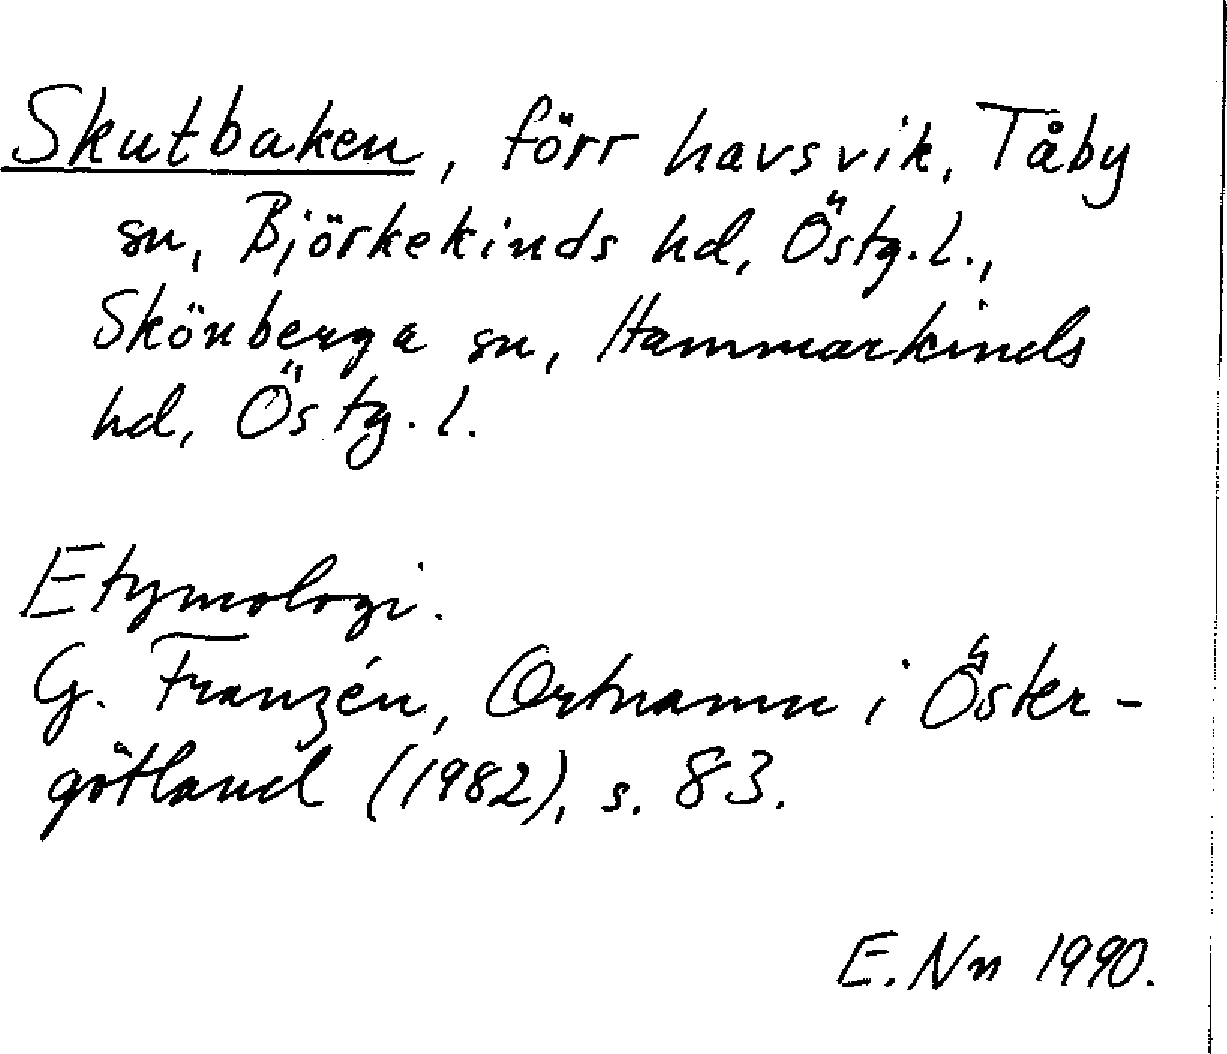 Skutbaken, förr havsvik, Tåby
sn, Björkekinds hd, Östg.l.,
Skönberga sn, Hammarkinds
hd, Östg.l.
Etymologi.
G. Franzén, Ortnamn i Öster-
götland (1982), s. 83.
E.Nn 1990.